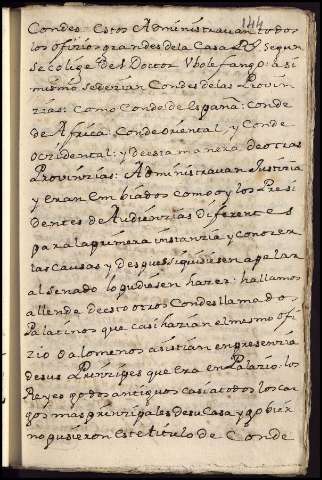 144
Condes. Estos Administravan todos
los ofizios grandes dela Casa Rl. Segun
se colige del Doctor Vbolefango: asi
mismo sedezian Condes delas Provin
zias: Como Conde de España: Conde
de Africa: Conde oriental, y Conde
oczidental: y de esta manera de otras
Provinzias: Administravan Justizia
y eran Embiados como oy los Presi
dentes de Audienzias diferentes
para la primera instanzia y conozer
las causas y despues si quisiesen apelar
al Senado lo pudiesen hazer: hallamos
allende de esto otros Condes llamados
Palatinos que casi hazian el mesmo ofi
zio o alomenos asistian en presenzia
de sus Prinzipes que era en Palazio. los
Reyes godos antiguos casi a todos los car
gos mas prinzipales de su Casa y gobier
no pusieron este titulo de Conde